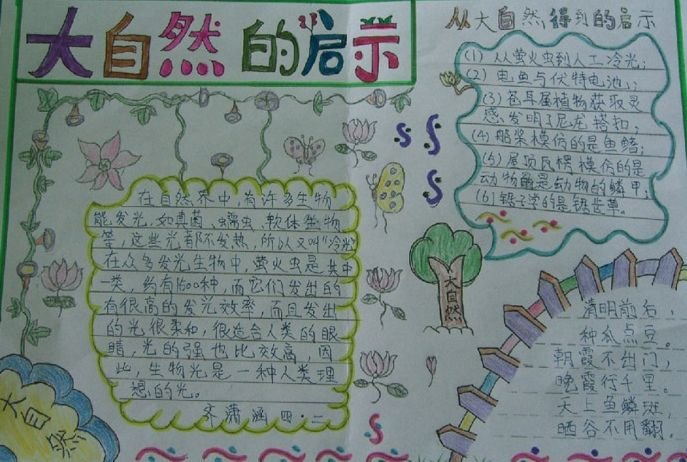 大自然的启示
从大自然得到的启示
(1) 从萤火虫到人工冷光;
(2) 电鱼与伏特电池;
(3) 苍耳属植物获取灵
感发明了尼龙搭扣;
(4) 船桨模仿的是鱼鳍;
(5) 屋顶瓦楞模仿的是
动物的鳞甲;
(6) 锯子学的是锯齿草。
在自然界中,有许多生物
能发光,如真菌、蠕虫、软体动物
等,这些光都不发热,所以又叫“冷光”
在众多发光生物中,萤火虫是其中
一类,约有1500种,而它们发出的
有很高的发光效率,而且发出
的光很柔和,很适合人类的眼
睛,光的强也比效高,因
此,生物光是一种人类理
想的光。
潇涵 四·二
大自然
大自然
清明前后,
种瓜点豆。
朝霞不出门,
晚霞行千里。
天上鱼鳞斑,
晒谷不用翻。